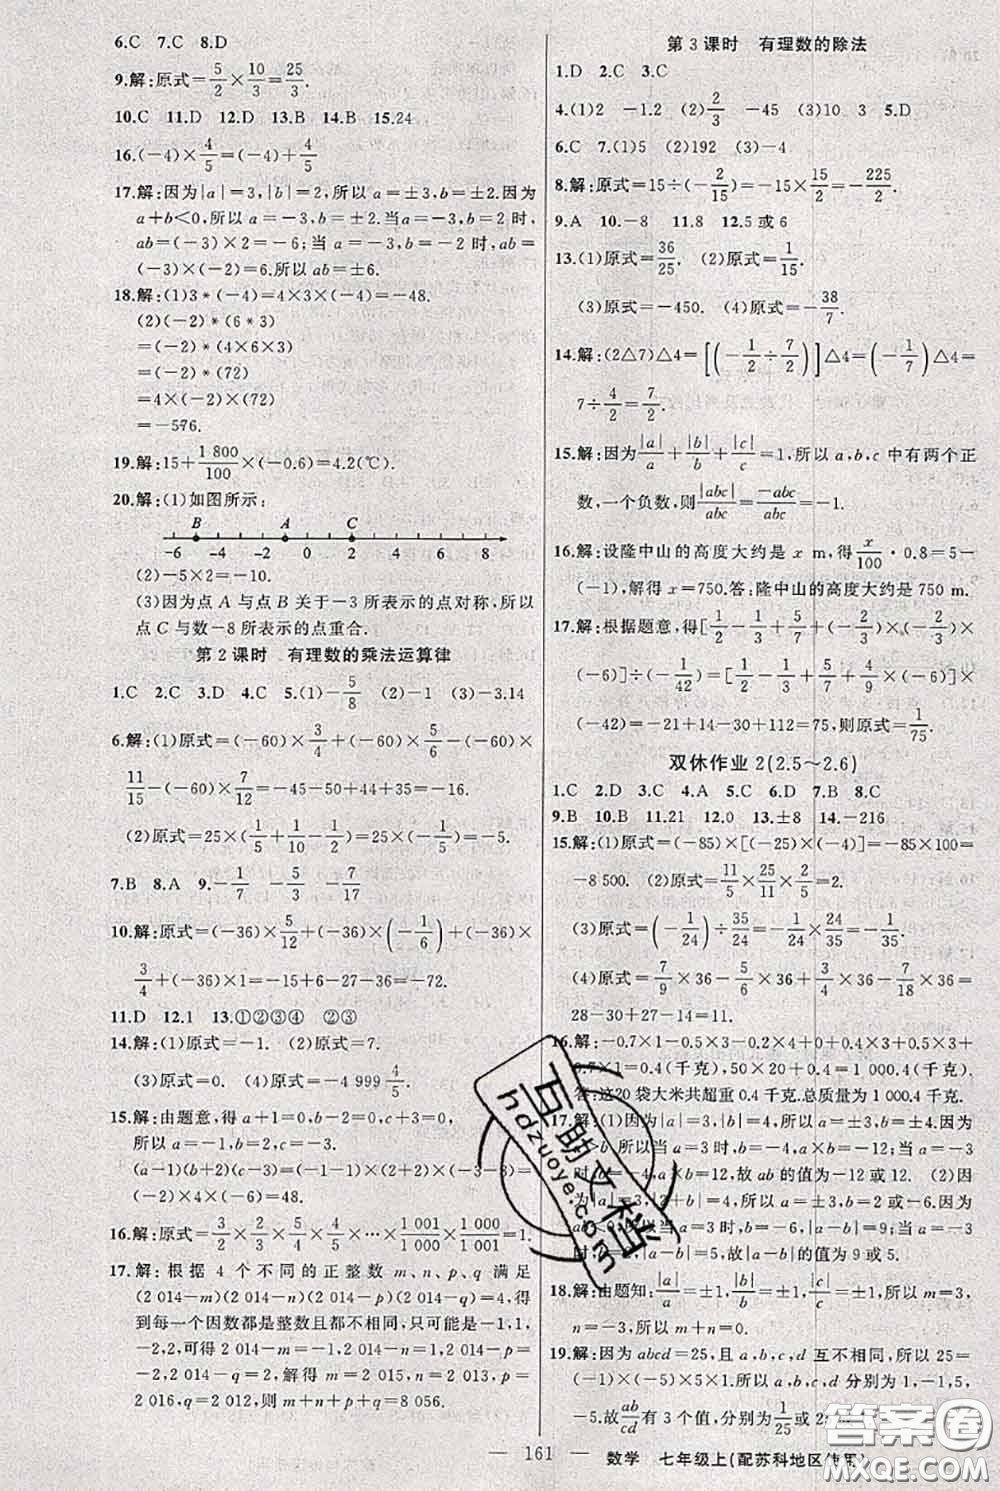 6.C 7.C 8.D
9.解:原式=5/2×10/3=25/3.
10.C 11.D 12.D 13.B 14.B 15.24
16.(-4)×4/5=(-4)+4/5
17.解:因为|a|=3,|b|=2,所以a=±3,b=±2.因为
a+b<0,所以a=-3,b=±2.当a=-3,b=2时,
ab=(-3)×2=-6;当a=-3,b=-2时,ab=
(-3)×(-2)=6.所以ab=±6.
18.解:(1)3*(-4)=4×3×(-4)=-48.
(2)(-2)*(6*3)
=(-2)*(4×6×3)
=(-2)*(72)
=4×(-2)×(72)
=-576.
19.解:15+1 800/100×(-0.6)=4.2(℃).
20.解:(1)如图所示:
B A C
-6 -4 -2 0 2 4 6 8
(2)-5×2=-10.
(3)因为点A与点B关于-3所表示的点对称,所以
点C与数-8所表示的点重合.
第2课时 有理数的乘法运算律
1.C 2.C 3.D 4.C 5.(1)-5/8 (2)-1 (3)-3.14
6.解:(1)原式=(-60)×3/4+(-60)×5/6-(-60)×
11/15-(-60)×7/12=-45-50+44+35=-16.
(2)原式=25×(1/5+1/10-1/2)=25×(-1/5)=-5.
7.B 8.A 9.-1/7 -5/3 -7/17
10.解:原式=(-36)×5/12+(-36)×(-1/6)+(-36)×
3/4+(-36)×1=-15+6-27-36=-72.
11.D 12.1 13.①②③④ ②③
14.解:(1)原式=-1. (2)原式=7.
(3)原式=0. (4)原式=-4 999 4/5.
15.解:由题意,得a+1=0,b-2=0,c+3=0,
所以a=-1,b=2,c=-3.
(a-1)(b+2)(c-1)=(-1-1)×(2+2)×(-3-1)=
(-2)×4×(-4)=48.
16.解:原式=3/2×2/3×5/4×4/5×…×1 001/1 000×1 000/1 001=1.
17.解:根据4个不同的正整数m、n、p、q满足
(2 014-m)(2 014-n)(2 014-p)(2 014-q)=4,得
到每一个因数都是整数且都不相同,只可能是-1,1,
-2,2,可得2 014-m=-2,2 014-n=-1,2 014-p=
1,2 014-q=2,解得m=2 016,n=2 015,p=2 013,
q=2 012,则m+n+p+q=8 056.
第3课时 有理数的除法
1.D 2.C 3.C
4.(1)2 -1.2 (2)2/3 -45 (3)10 3 5.D
6.C 7.(1)5 (2)192 (3)-6
8.解:原式=15÷(-2/15)=-15×15/2=-225/2.
9.A 10.-8 11.8 12.5或6
13.(1)原式=36/25. (2)原式=1/15.
(3)原式=-450. (4)原式=-38/7.
14.解:(2△7)△4=[(-1/2÷7/2)]△4=(-1/7)△4=
7÷4/2=7/2.
15.解:因为|a|/a+|b|/b+|c|/c=1,所以a,b,c中有两个正
数,一个负数,则|abc|/abc=-abc/abc=-1.
16.解:设隆中山的高度大约是x m,得x/100·0.8=5-
(-1),解得x=750.答:隆中山的高度大约是750 m.
17.解:根据题意,得[1/2-1/3+5/7+(-2/3)×(-2/3)×
(-6)]÷(-1/42)=[1/2-1/3+5/7+4/9×(-6)]×
(-42)=-21+14-30+112=75,则原式=1/75.
双休作业2(2.5~2.6)
1.C 2.D 3.C 4.A 5.C 6.D 7.B 8.C
9.B 10.B 11.21 12.0 13.±8 14.-216
15.解:(1)原式=(-85)×[(-25)×(-4)]=-85×100=
-8 500. (2)原式=11/5×25/11×2/5=2.
(3)原式=(-1/24)÷35/24=-1/24×24/35=-1/35.
(4)原式=7/9×36-5/6×36+3/4×36-7/18×36=
28-30+27-14=11.
16.解:-0.7×1-0.5×3-0.2×4+0×5+0.4×4+
0.5×2+0.7×1=0.4(千克),50×20+0.4=1 000.4(千克).
答:这20袋大米共超重0.4千克.总质量为1 000.4千克.
17.解:(1)因为|a|=3,|b|=4,所以a=±3,
时,
=-4时,ab=12,故ab的值为-12或12. (2)因
|=3,|2+b|=4,所以a=±3,b=2或-6.因为
当a=3时,b=-6,|a-b|=9;当a=-3
时,b=2,|a-b|=5,故|a-b|的值为9或5.
18.解:由题知:|a|/a=±1,|b|/b=±1,|c|/c=±1,所以m=3,
n=-3,所以m+n=0.
19.解:因为abcd=25,且a,b,c,d互不相同,所以25=
(-1)×(-5)×5×1,所以a,b,c,d分别为1,-1,5,
-5.故ab/cd有3个值,分别为1/25或25或1.
— 161 — 数学 七年级上(配苏科地区使用)
互助文档
hdzuoye.com
答案圈
MXQE.COM